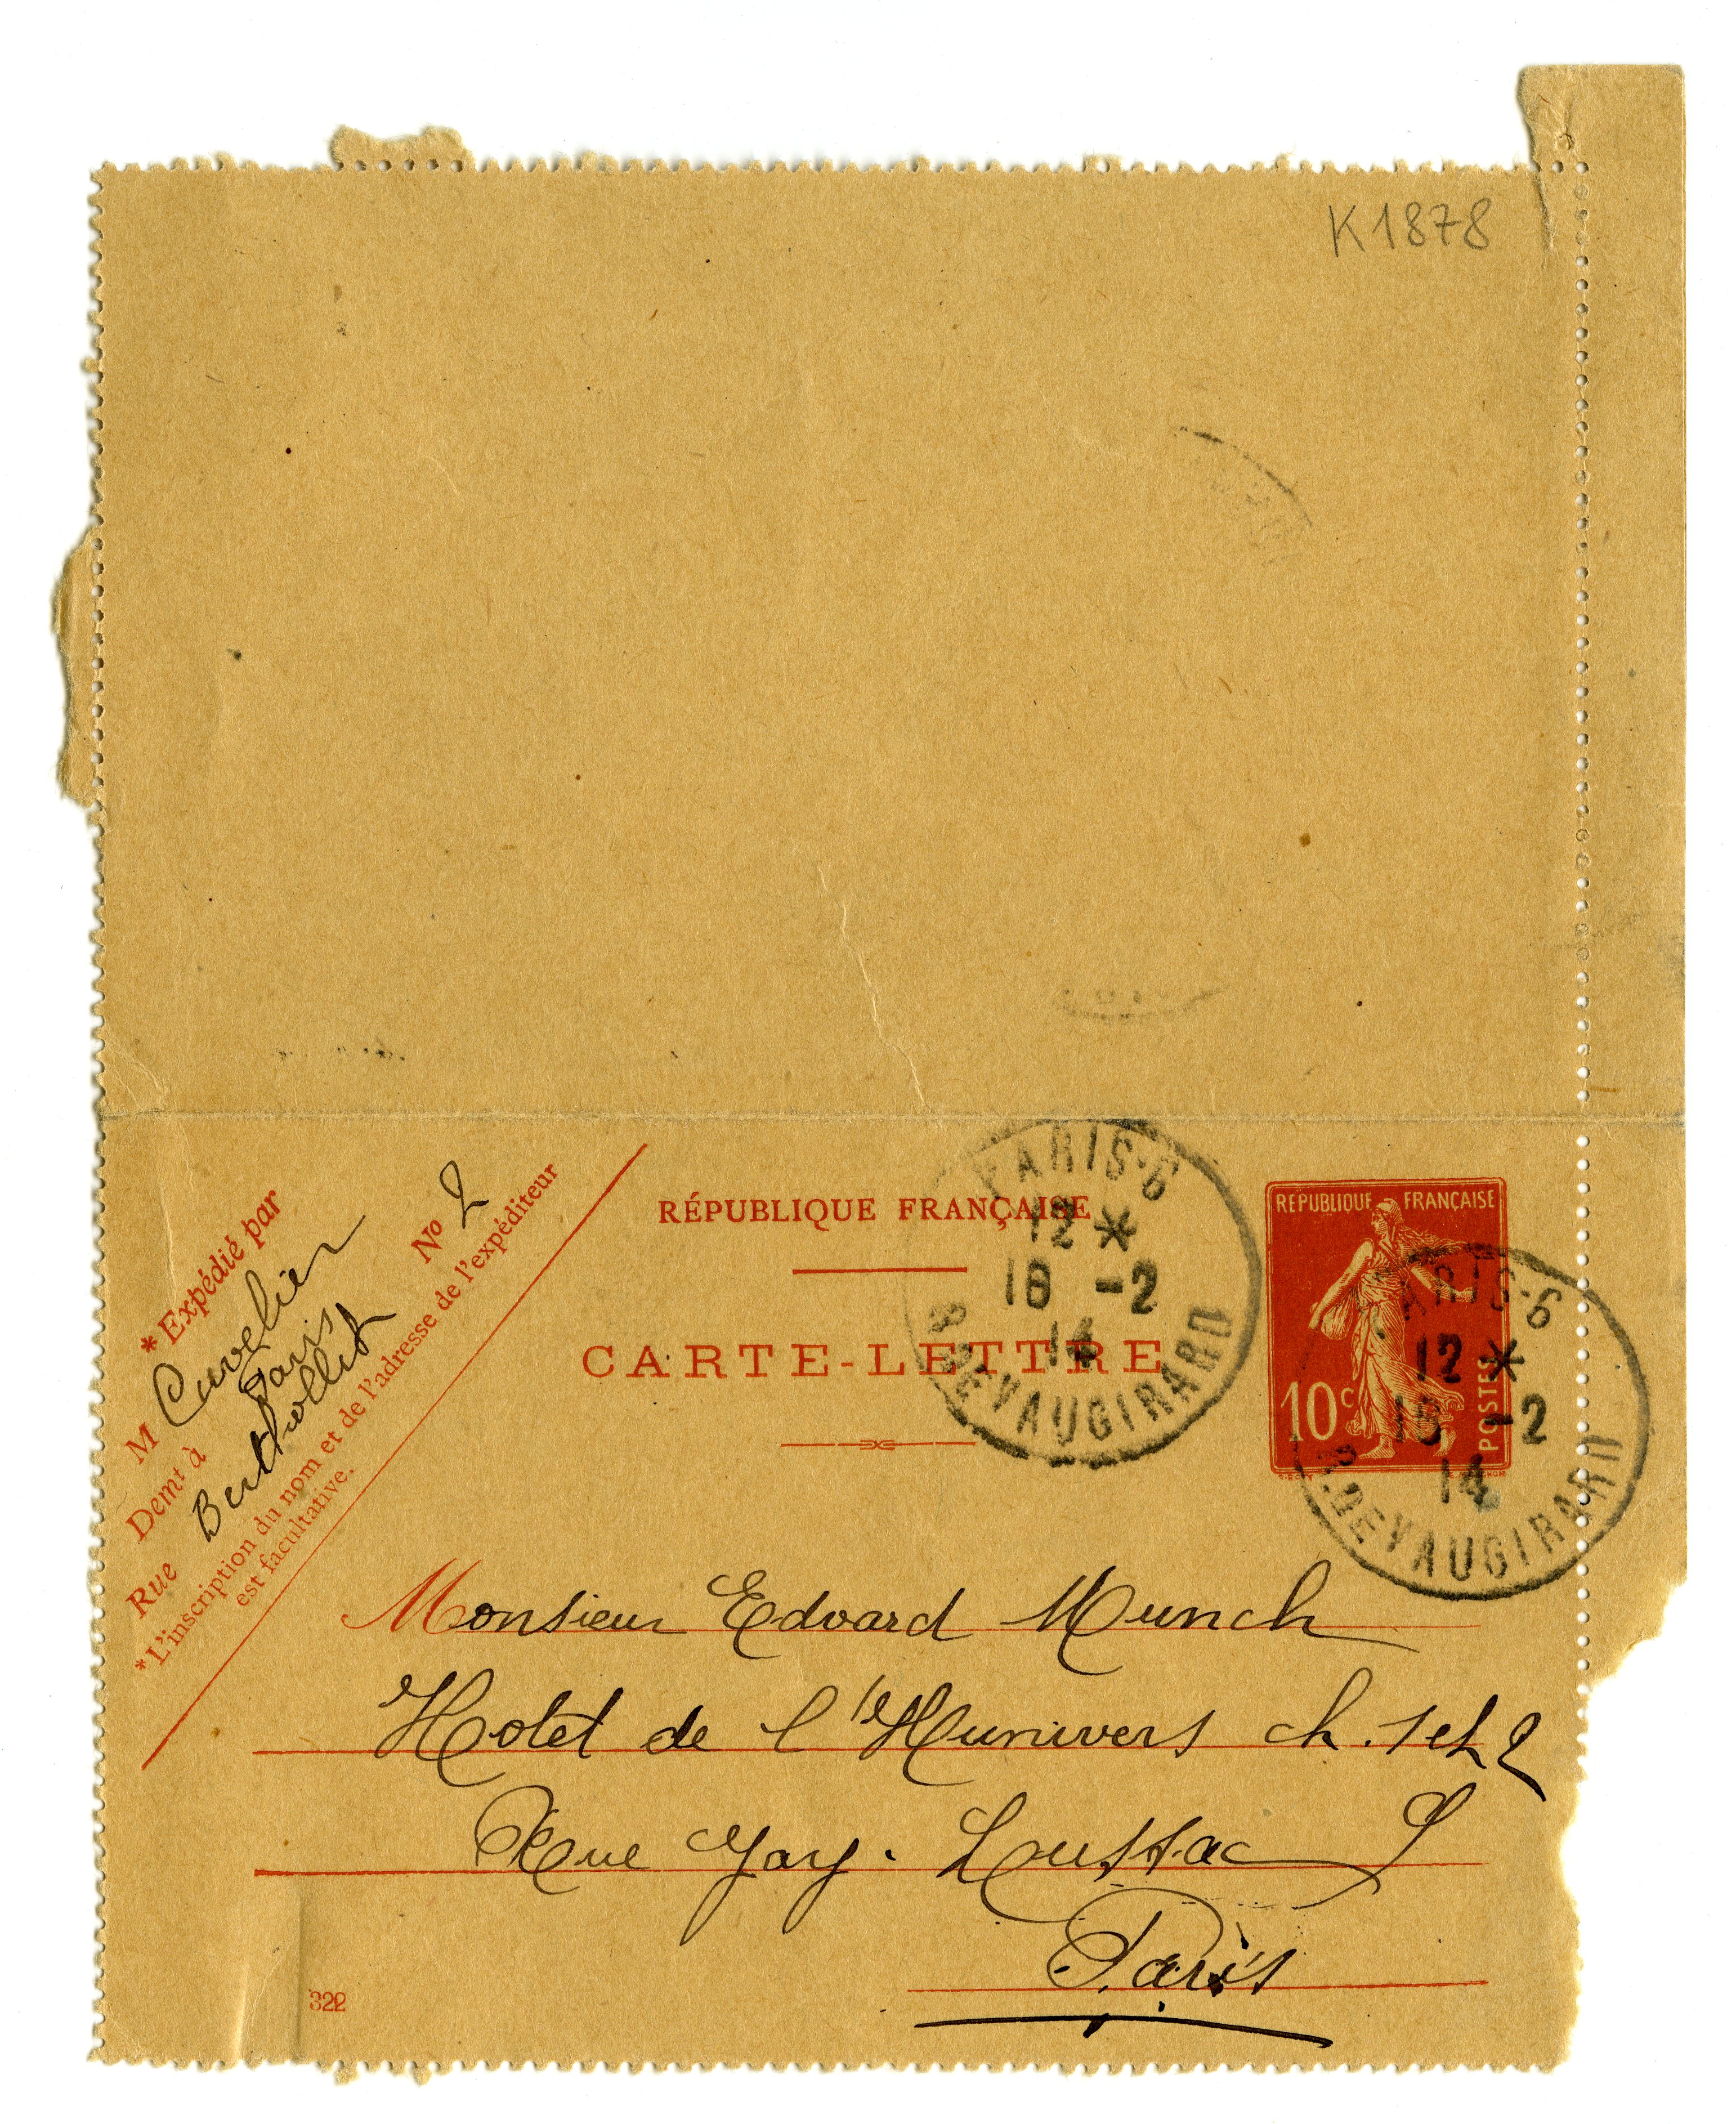 K1878
* Expédié par
M Cuvelier
Demt à Paris
Rue Berthollet No 2
*L'inscription du nom et de l'adresse de l'expéditeur
est facultative.
RÉPUBLIQUE FRANÇAISE
CARTE-LETTRE
PARIS-6
12 *
18 -2
14
R. DE VAUGIRARD
REPUBLIQUE FRANÇAISE
10c
POSTES
PARIS-6
12 *
18 -2
14
R. DE VAUGIRARD
Monsieur Edvard Munch
Hotel de l'Hunivers ch. 1 et 2
Rue Gay-Lussac
Paris
322